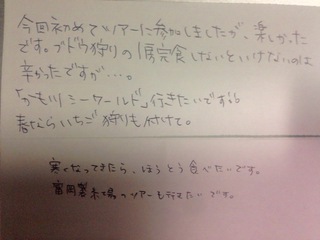 今回初めてツアーに参加しましたが、楽しかった
です。ブドウ狩りの1房完食しないといけないのは
辛かったですが…。
「かもがわシーワールド」行きたいです。
春ならいちご狩りも付けて。
寒くなってきたら、ほうとう食べたいです。
富岡製糸場のツアーも行きたいです。